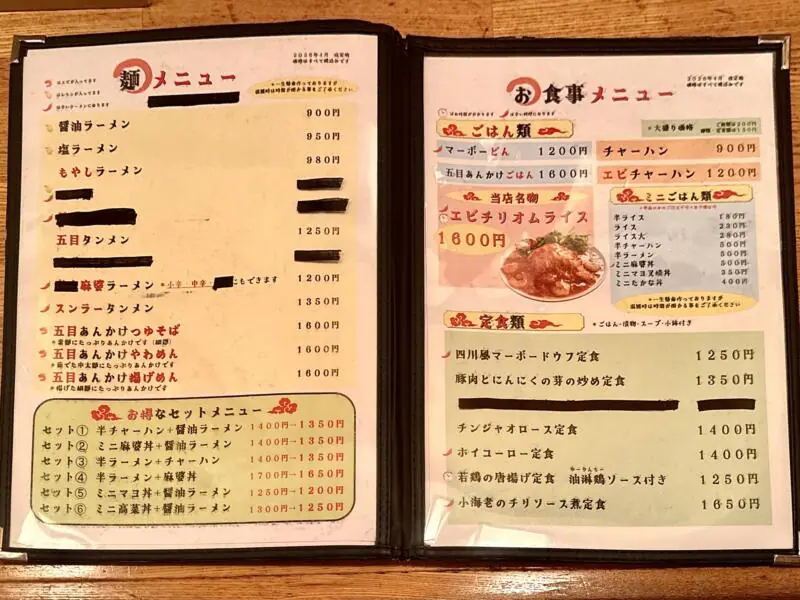 麺メニュー
2026年4月 改定版
価格はすべて税込みです
醤油ラーメン 900円
塩ラーメン 950円
もやしラーメン 980円
五目タンメン 1250円
麻婆ラーメン *小辛・中辛・ にもできます 1200円
スンラータンメン 1350円
五目あんかけつゆそば 1600円
五目あんかけやわめん 1600円
五目あんかけ揚げめん 1600円
*揚げた細麺にたっぷりあんかけです
お得なセットメニュー
セット① 半チャーハン+醤油ラーメン 1400円→1350円
セット② ミニ麻婆丼+醤油ラーメン 1400円→1350円
セット③ 半ラーメン+チャーハン 1400円→1350円
セット④ 半ラーメン+麻婆丼 1700円→1650円
セット⑤ ミニマヨ丼+醤油ラーメン 1250円→1200円
セット⑥ ミニ高菜丼+醤油ラーメン 1300円→1250円
お食事メニュー
2026年4月 改定版
価格はすべて税込みです
ごはん類
*大盛り価格
マーボーどん 1200円
五目あんかけごはん 1600円
チャーハン 900円
エビチャーハン 1200円
当店名物
エビチリオムライス
1600円
ミニごはん類
半ライス 180円
ライス 230円
ライス大 280円
半チャーハン 500円
半ラーメン 500円
ミニ麻婆丼 500円
ミニマヨ叉焼丼 350円
ミニたかな丼 400円
定食類
*ごはん・漬物・スープ・小鉢付き
四川風マーボードウフ定食 1250円
豚肉とにんにくの芽の炒め定食 1350円
チンジャオロース定食 1400円
ホイコーロー定食 1400円
若鶏の唐揚げ定食 油淋鶏ソース付き 1250円
小海老のチリソース煮定食 1650円